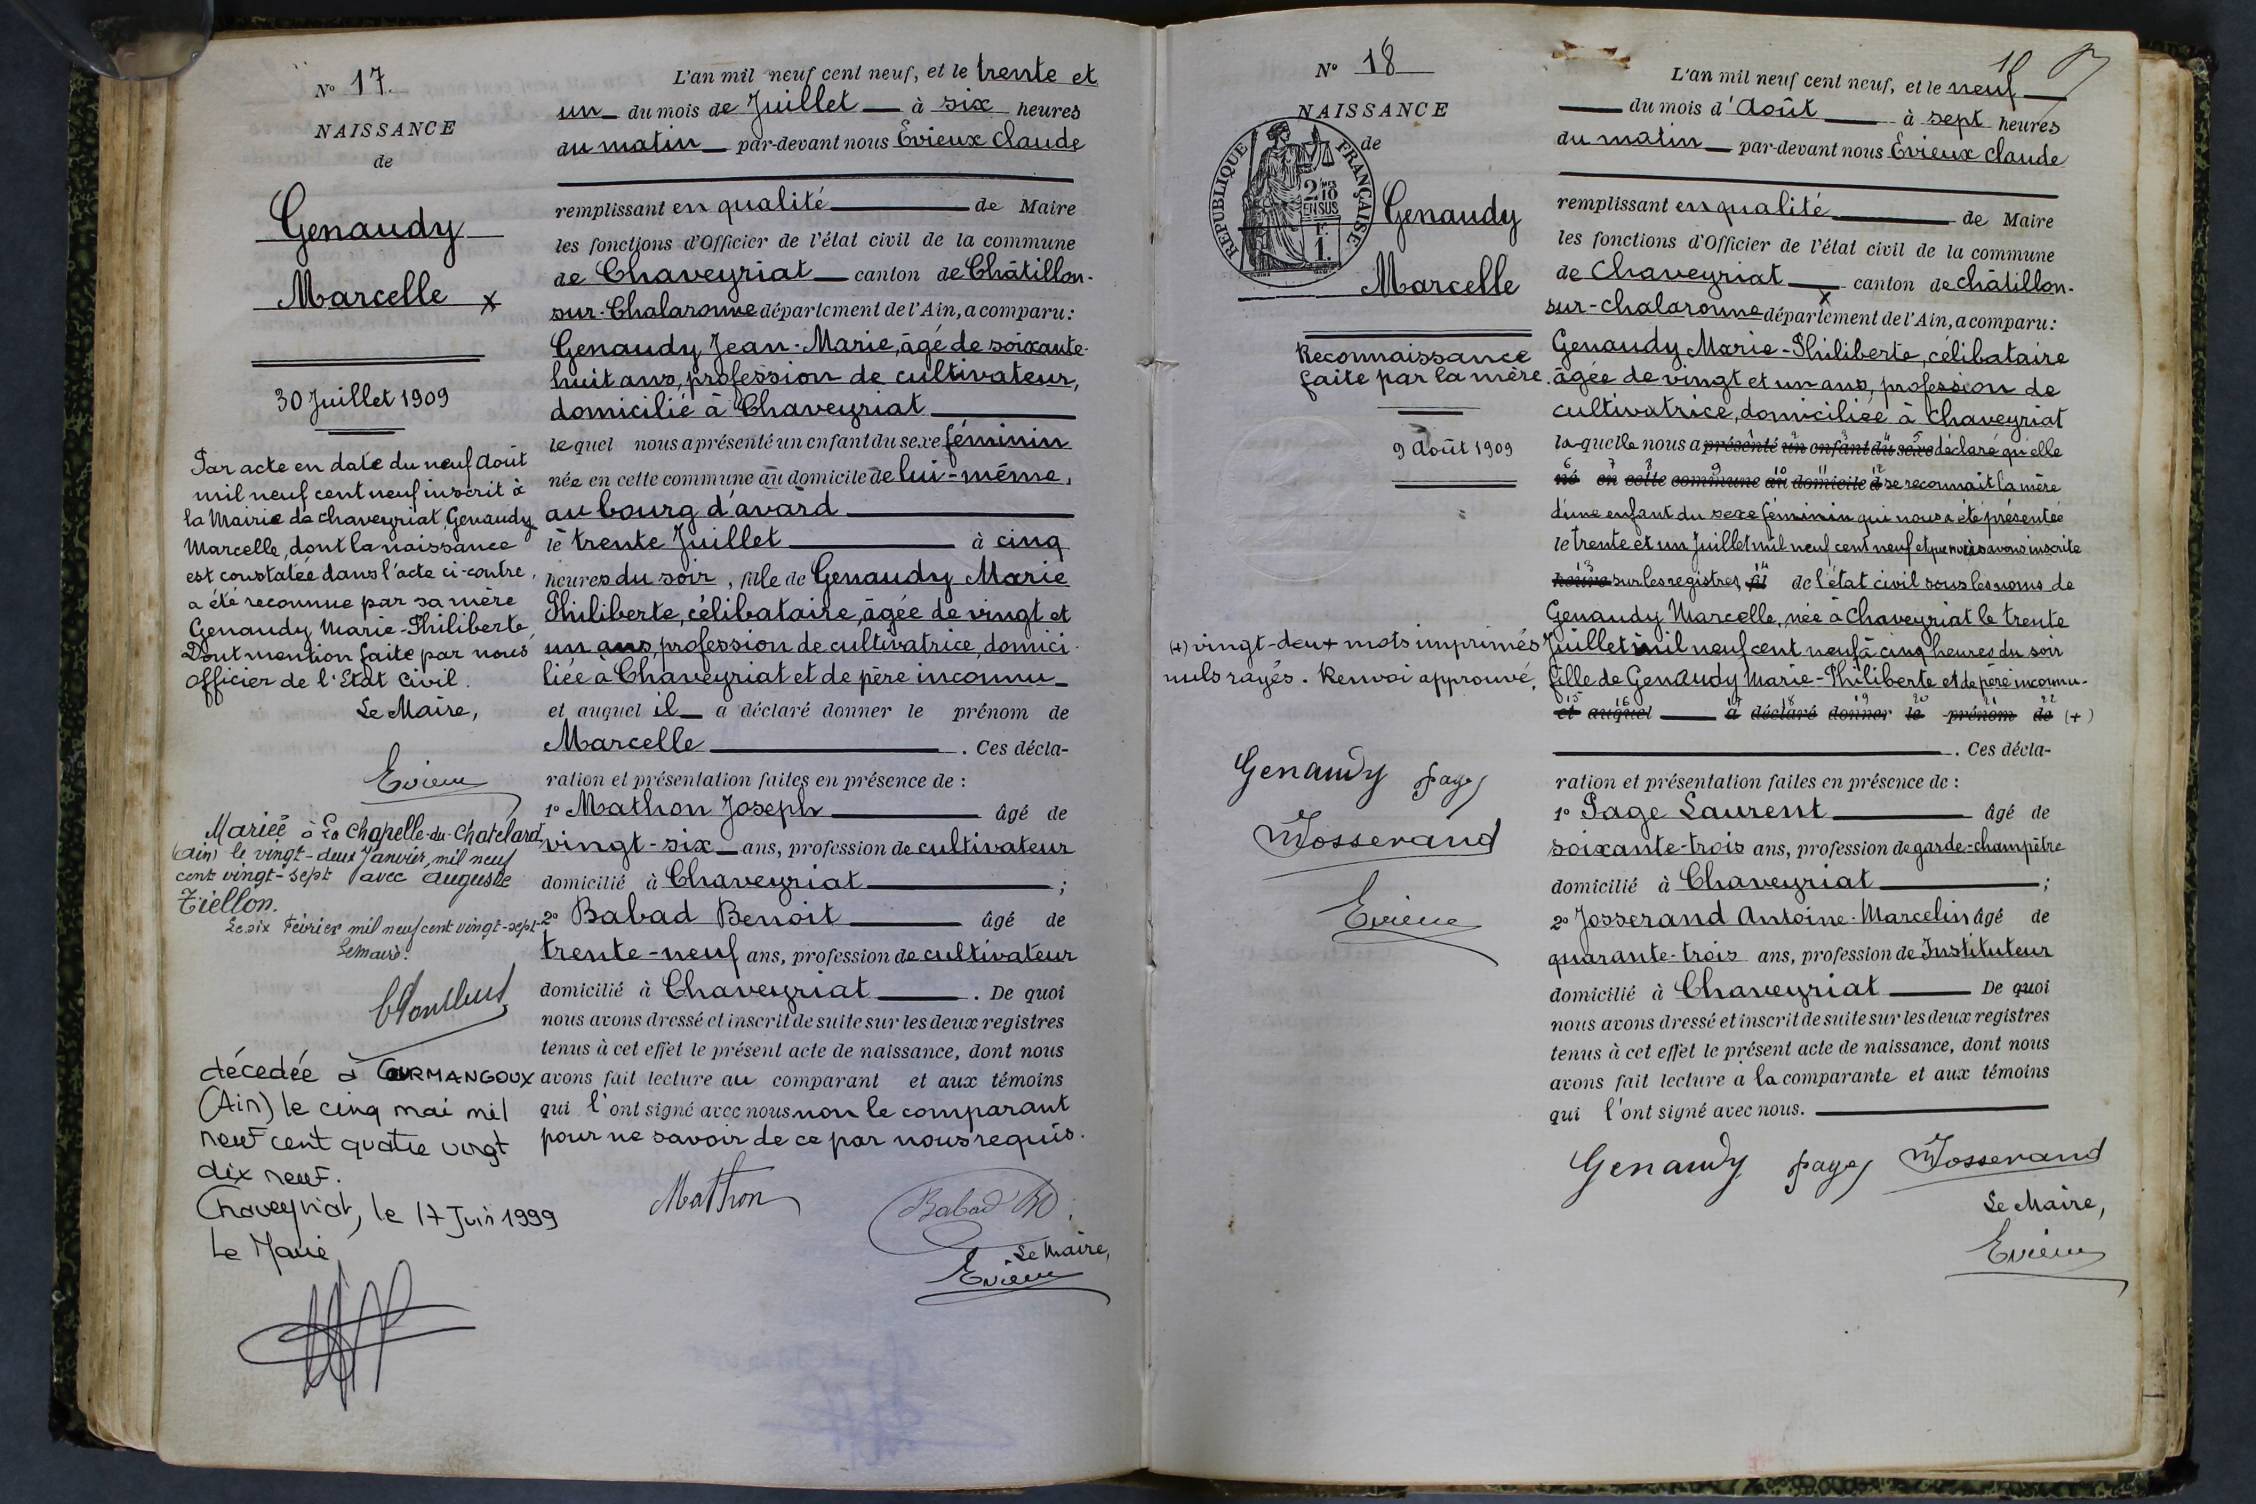 N° 17
NAISSANCE
de
Genaudy
Marcelle x
30 Juillet 1909
Par acte en date du neuf Août
mil neuf cent neuf inscrit à
la Mairie de Chaveyriat, Genaudy
Marcelle, dont la naissance
est constatée dans l'acte ci-contre,
a été reconnue par sa mère
Genaudy Marie-Philiberte,
Dont mention faite par nous
officier de l'Etat Civil.
Le Maire,
Evieux
Mariée à La Chapelle-du-Chatelard
(Ain) le vingt-deux Janvier mil neuf
cent vingt-sept avec Auguste
Tiellon.
Le six Février mil neuf cent vingt-sept
Le maire:
décedée à CORMANGOUX
(Ain) le cinq mai mil
neuf cent quatre vingt
dix neuf.
Chaveyriat, le 17 Juin 1999
Le Maire
L'an mil neuf cent neuf, et le trente et
un du mois de Juillet à six heures
du matin par-devant nous Evieux Claude
remplissant en qualité de Maire
les fonctions d'Officier de l'état civil de la commune
de Chaveyriat canton de Châtillon-
sur-Chalaronne département de l'Ain, a comparu:
Genaudy Jean-Marie, âgé de soixante-
huit ans, profession de cultivateur,
domicilié à Chaveyriat
lequel nous a présenté un enfant du sexe féminin
née en cette commune au domicile de lui-même,
au bourg d'avard
le trente Juillet à cinq
heures du soir, fille de Genaudy Marie
Philiberte, célibataire, âgée de vingt et
un ans, profession de cultivatrice, domici-
liée à Chaveyriat et de père inconnu
et auquel il a déclaré donner le prénom de
Marcelle. Ces décla-
ration et présentation faites en présence de :
1° Mathon Joseph âgé de
vingt-six ans, profession de cultivateur
domicilié à Chaveyriat ;
2° Babad Benoit âgé de
trente-neuf ans, profession de cultivateur
domicilié à Chaveyriat. De quoi
nous avons dressé et inscrit de suite sur les deux registres
tenus à cet effet le présent acte de naissance, dont nous
avons fait lecture au comparant et aux témoins
qui l'ont signé avec nous non le comparant
pour ne savoir de ce par nous requis.
Mathon
Babad
Le Maire,
Evieux
N° 18
NAISSANCE
de
RÉPUBLIQUE FRANÇAISE
2/10
EN SUS
1F.
Genaudy
Marcelle
Reconnaissance
faite par la mère.
9 Août 1909
(+) vingt-deux mots imprimés
nuls rayés. Renvoi approuvé.
Genaudy Page
Josserand
Evieux
10
L'an mil neuf cent neuf, et le neuf
du mois d'Août à sept heures
du matin par-devant nous Evieux Claude
remplissant en qualité de Maire
les fonctions d'Officier de l'état civil de la commune
de Chaveyriat canton de Châtillon-
sur-Chalaronne département de l'Ain, a comparu:
Genaudy Marie-Philiberte, célibataire
âgée de vingt et un ans, profession de
cultivatrice, domiciliée à Chaveyriat
laquelle nous a présenté un enfant du sexe déclaré qu'elle
né en cette commune au domicile d se reconnait la mère
d'une enfant du sexe féminin qui nous a été présentée
le trente et un Juillet mil neuf cent neuf et que nous avons inscrite
heures sur les registres, fil de l'état civil sous les noms de
Genaudy Marcelle, née à Chaveyriat le trente
Juillet mil neuf cent neuf à cinq heures du soir
fille de Genaudy Marie-Philiberte et de père inconnu.
et auquel a déclaré donner le prénom de (+)
. Ces décla-
ration et présentation faites en présence de :
1° Page Laurent âgé de
soixante-trois ans, profession de garde-champêtre
domicilié à Chaveyriat ;
2° Josserand Antoine-Marcelin âgé de
quarante-trois ans, profession de Instituteur
domicilié à Chaveyriat De quoi
nous avons dressé et inscrit de suite sur les deux registres
tenus à cet effet le présent acte de naissance, dont nous
avons fait lecture à la comparante et aux témoins
qui l'ont signé avec nous.
Genaudy Page Josserand
Le Maire,
Evieux